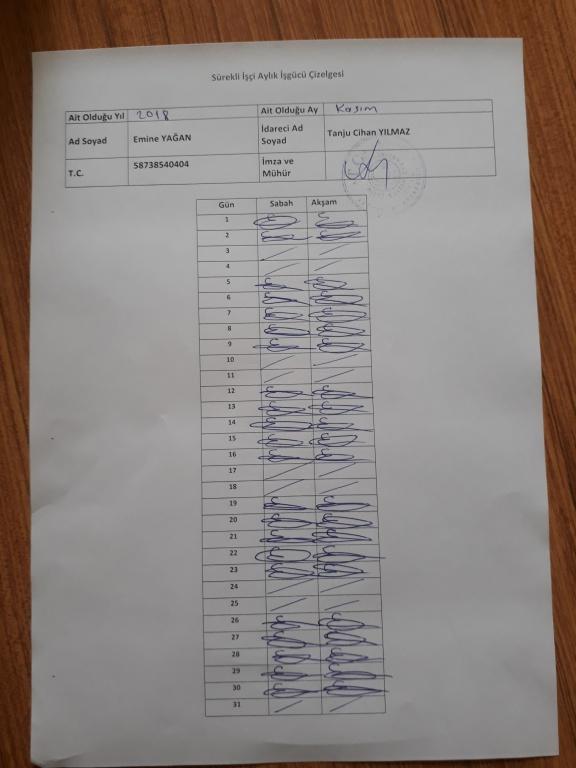 Sürekli İşçi Aylık İşgücü Çizelgesi
Ait Olduğu Yıl 2018 Ait Olduğu Ay Kasım
Ad Soyad Emine YAĞAN İdareci Ad Soyad Tanju Cihan YILMAZ
T.C. 58738540404 İmza ve Mühür
Gün Sabah Akşam
1
2
3
4
5
6
7
8
9
10
11
12
13
14
15
16
17
18
19
20
21
22
23
24
25
26
27
28
29
30
31